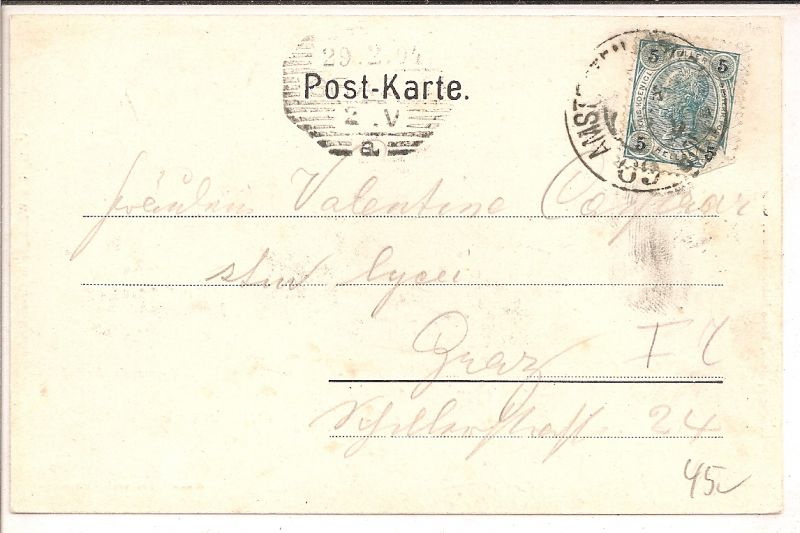 29.2.04
Post-Karte.
2.V
a
AMST
5 5
5 5
Fräulein Valentine
stud lycei
Graz I
Schillerstraße 24
45